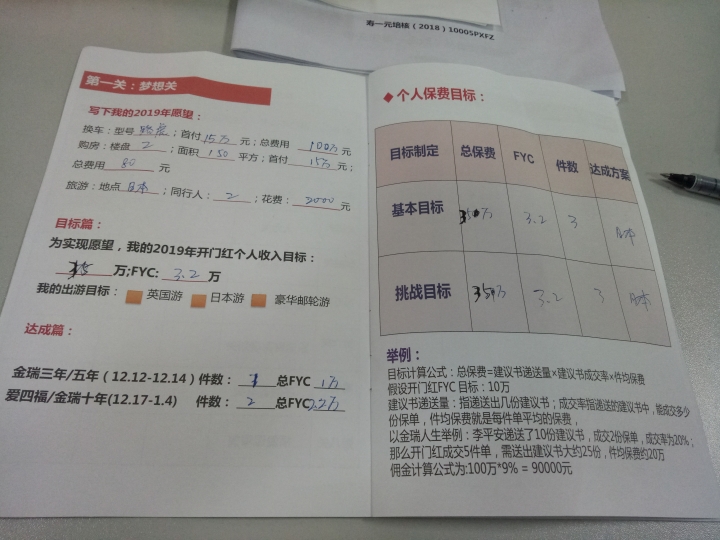 寿一元培核（2018）10005PXFZ
第一关：梦想关
写下我的2019年愿望：
换车：型号 ；首付 15万 元；总费用 100万 元
购房：楼盘 2 ；面积 150 平方；首付 15万 元；
总费用 80 元
旅游：地点 日本 ；同行人： 2 ；花费： 2000 元
目标篇：
为实现愿望，我的2019年开门红个人收入目标：
万;FYC: 3.2 万
我的出游目标： 英国游 日本游 豪华邮轮游
达成篇：
金瑞三年/五年（12.12-12.14）件数： 1 总FYC 1万
爱四福/金瑞十年(12.17-1.4) 件数： 2 总FYC 2.2万
◆ 个人保费目标：
目标制定 总保费 FYC 件数 达成方案
基本目标 3.2 3 日本
挑战目标 3.2 3 日本
举例：
目标计算公式：总保费=建议书递送量×建议书成交率×件均保费
假设开门红FYC 目标：10万
建议书递送量：指递送出几份建议书；成交率指递送的建议书中，能成交多少
份保单，件均保费就是每件单平均的保费，
以金瑞人生举例：李平安递送了10份建议书，成交2份保单，成交率为20%；
那么开门红成交5件单，需送出建议书大约25份，件均保费约20万
佣金计算公式为:100万*9% = 90000元